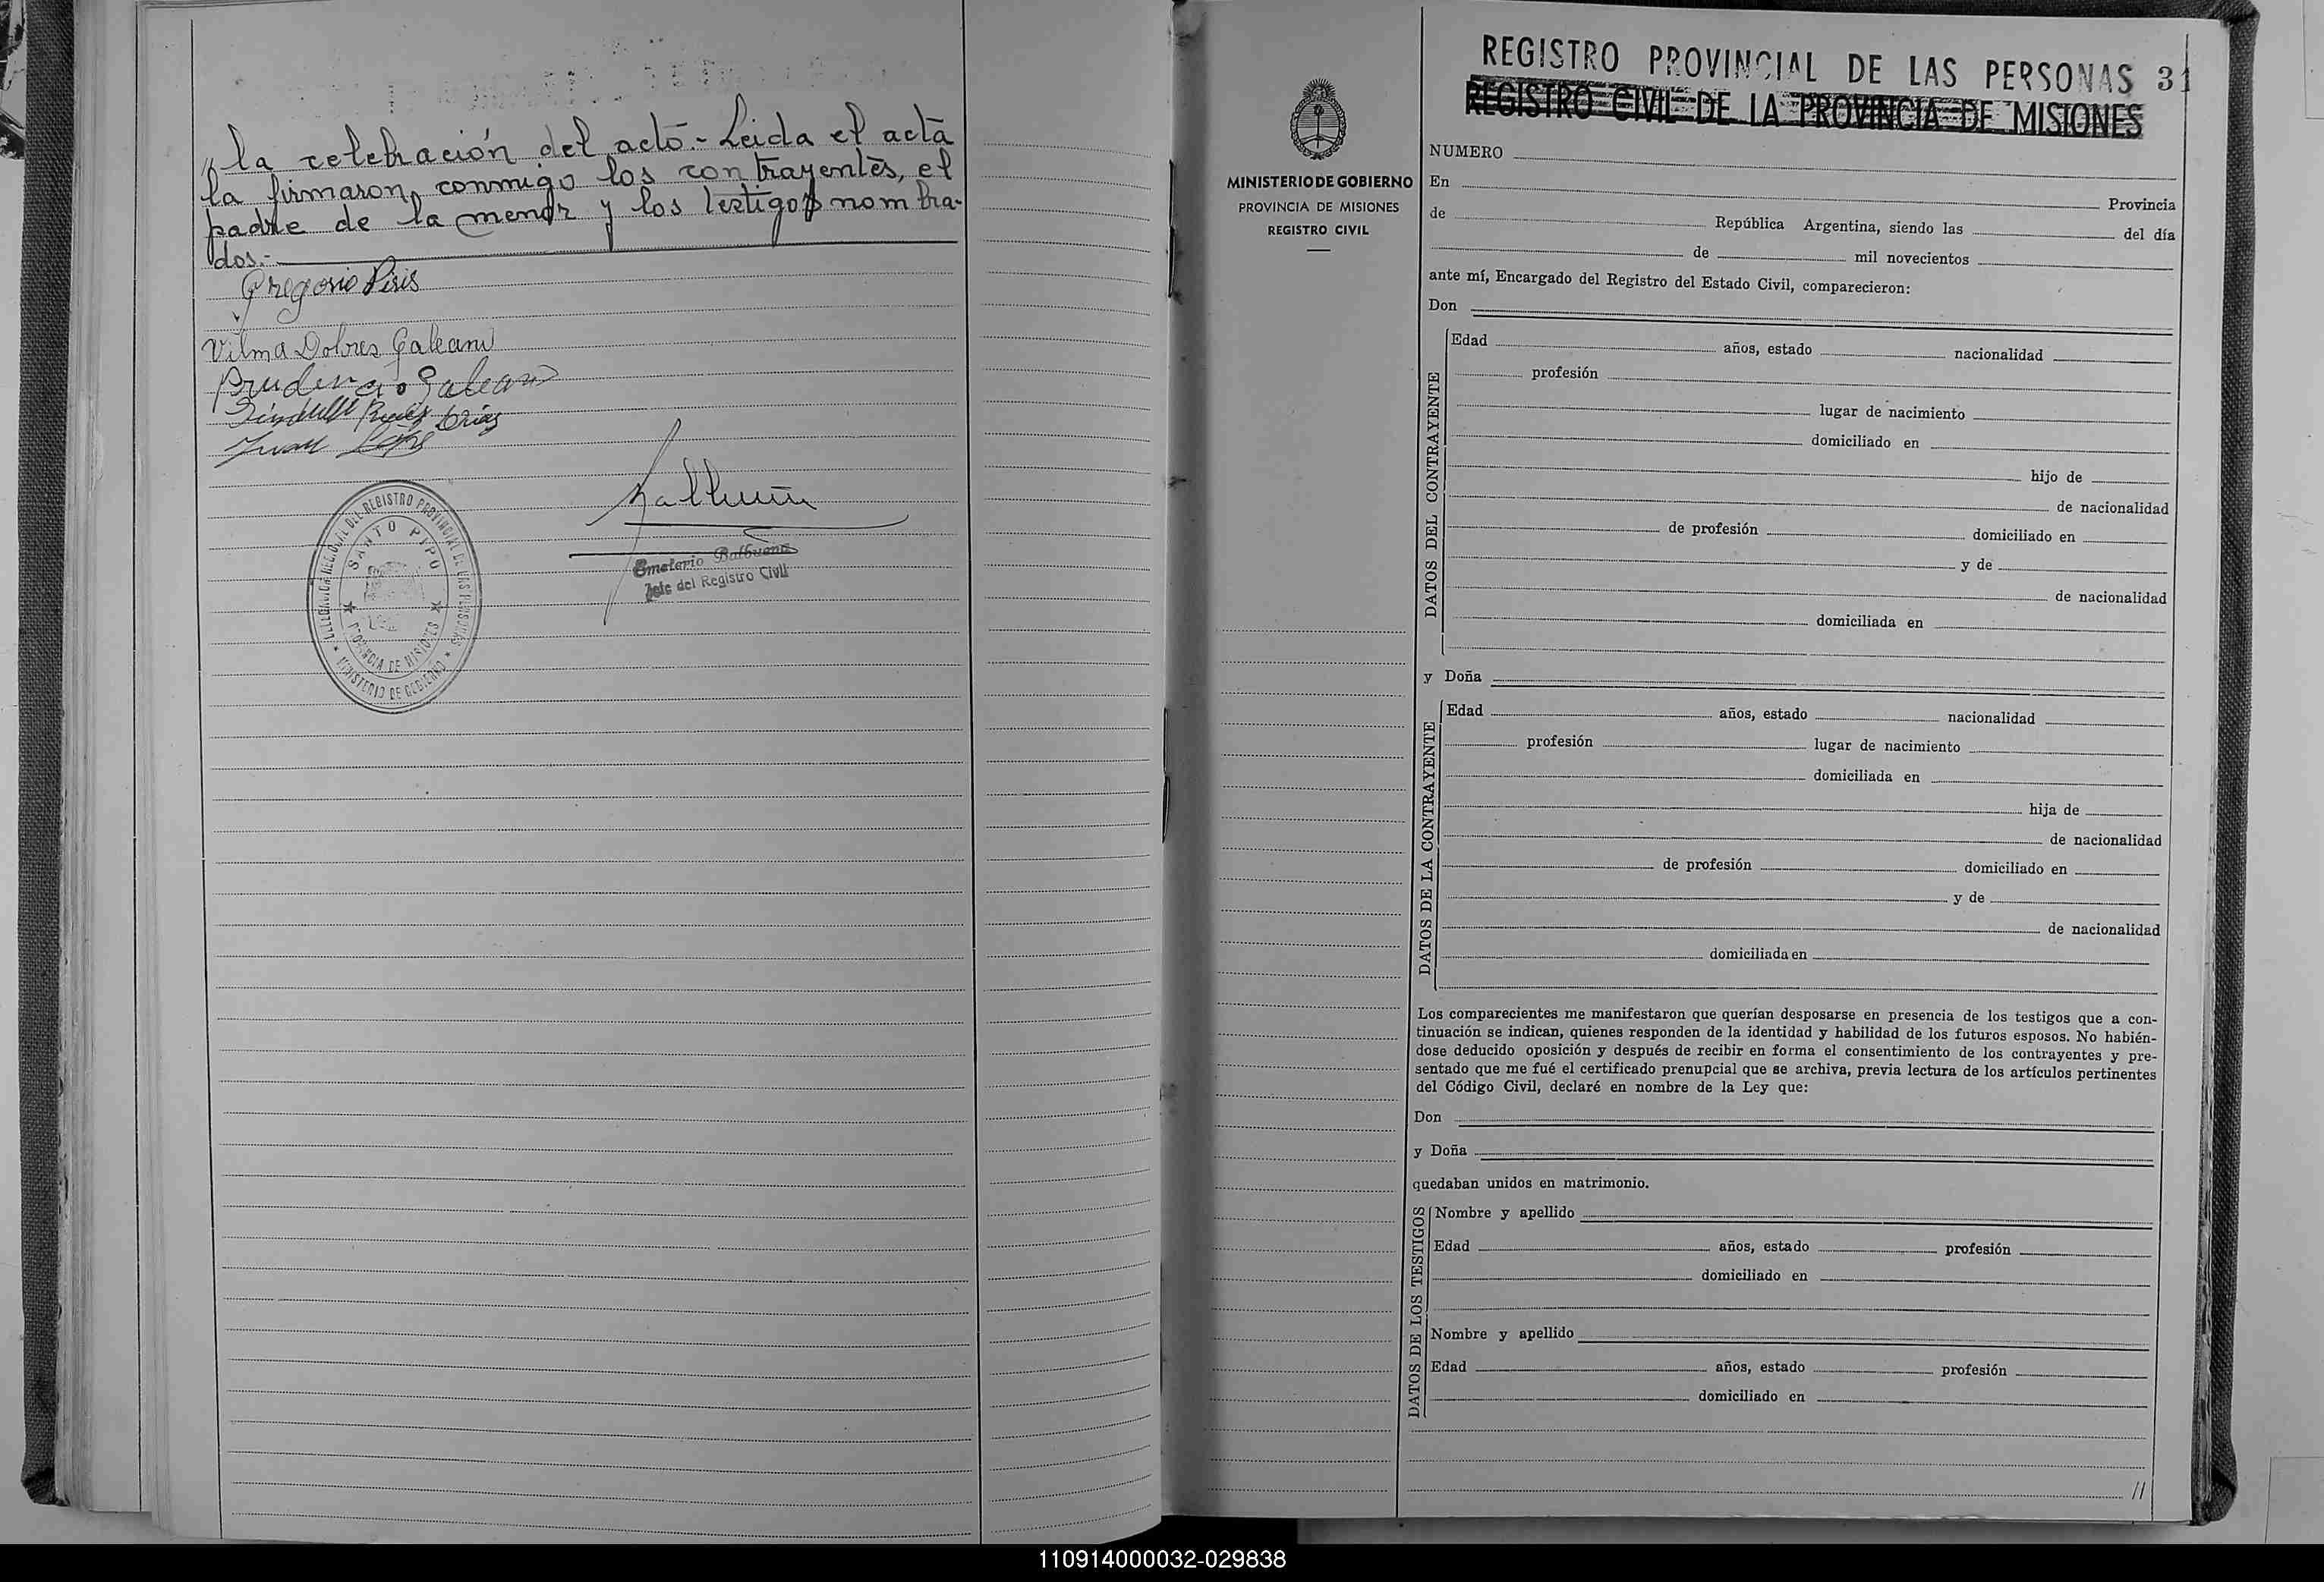 "la celebración del acto.- Leida el acta
la firmaron conmigo los contrayentes, el
padre de la menor y los testigos nombra-
dos.-
Gregorio Piris
Vilma Dolores Galeano
Prudencio Galeano
Juan
Emeterio Balbuena
Jefe del Registro Civil
DEL REGISTRO PROVINCIAL DE LAS PERSONAS
SANTO PIPO
PROVINCIA DE MISIONES
MINISTERIO DE GOBIERNO
MINISTERIO DE GOBIERNO
PROVINCIA DE MISIONES
REGISTRO CIVIL
REGISTRO PROVINCIAL DE LAS PERSONAS 31
REGISTRO CIVIL DE LA PROVINCIA DE MISIONES
NUMERO
En Provincia
de República Argentina, siendo las del día
de mil novecientos
ante mí, Encargado del Registro del Estado Civil, comparecieron:
Don
DATOS DEL CONTRAYENTE
Edad años, estado nacionalidad
profesión
lugar de nacimiento
domiciliado en
hijo de
de nacionalidad
de profesión domiciliado en
y de
de nacionalidad
domiciliada en
y Doña
DATOS DE LA CONTRAYENTE
Edad años, estado nacionalidad
profesión lugar de nacimiento
domiciliada en
hija de
de nacionalidad
de profesión domiciliado en
y de
de nacionalidad
domiciliada en
Los comparecientes me manifestaron que querían desposarse en presencia de los testigos que a con-
tinuación se indican, quienes responden de la identidad y habilidad de los futuros esposos. No habién-
dose deducido oposición y después de recibir en forma el consentimiento de los contrayentes y pre-
sentado que me fué el certificado prenupcial que se archiva, previa lectura de los artículos pertinentes
del Código Civil, declaré en nombre de la Ley que:
Don
y Doña
quedaban unidos en matrimonio.
DATOS DE LOS TESTIGOS
Nombre y apellido
Edad años, estado profesión
domiciliado en
Nombre y apellido
Edad años, estado profesión
domiciliado en
//
110914000032-029838